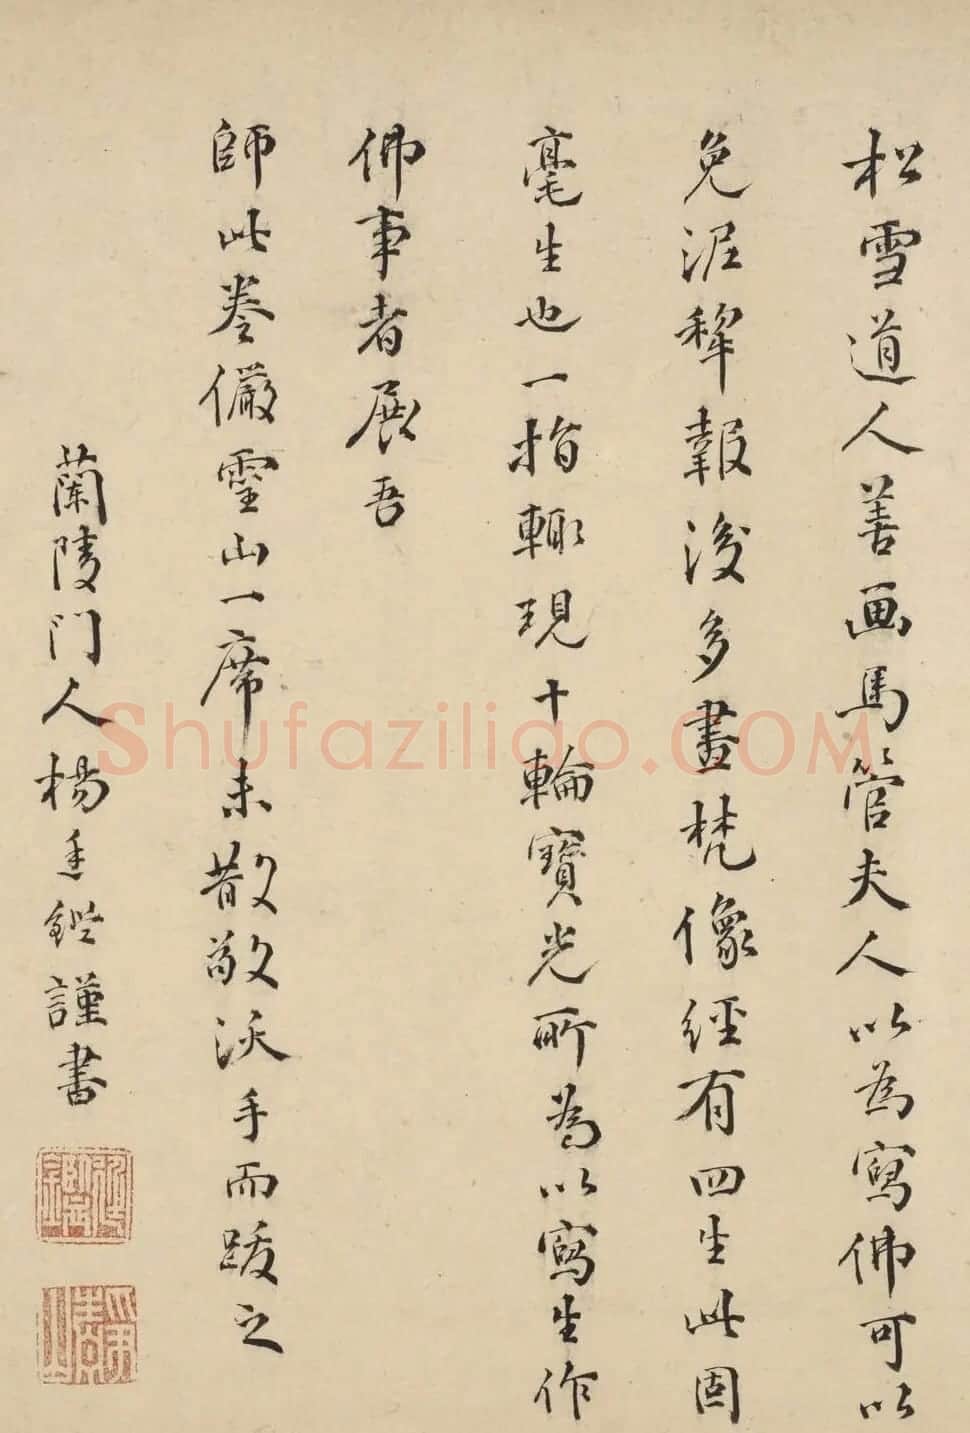 松雪道人善画馬管夫人以為寫佛可以
免泥犂報後多畫梵像經有四生此固
毫生也一指輙現十輪寶光所為以寫生作
佛事者展吾
師此卷儼霊山一席未散敬沃手而跋之
蘭陵門人楊廷鑑謹書
Shufazilido.COM